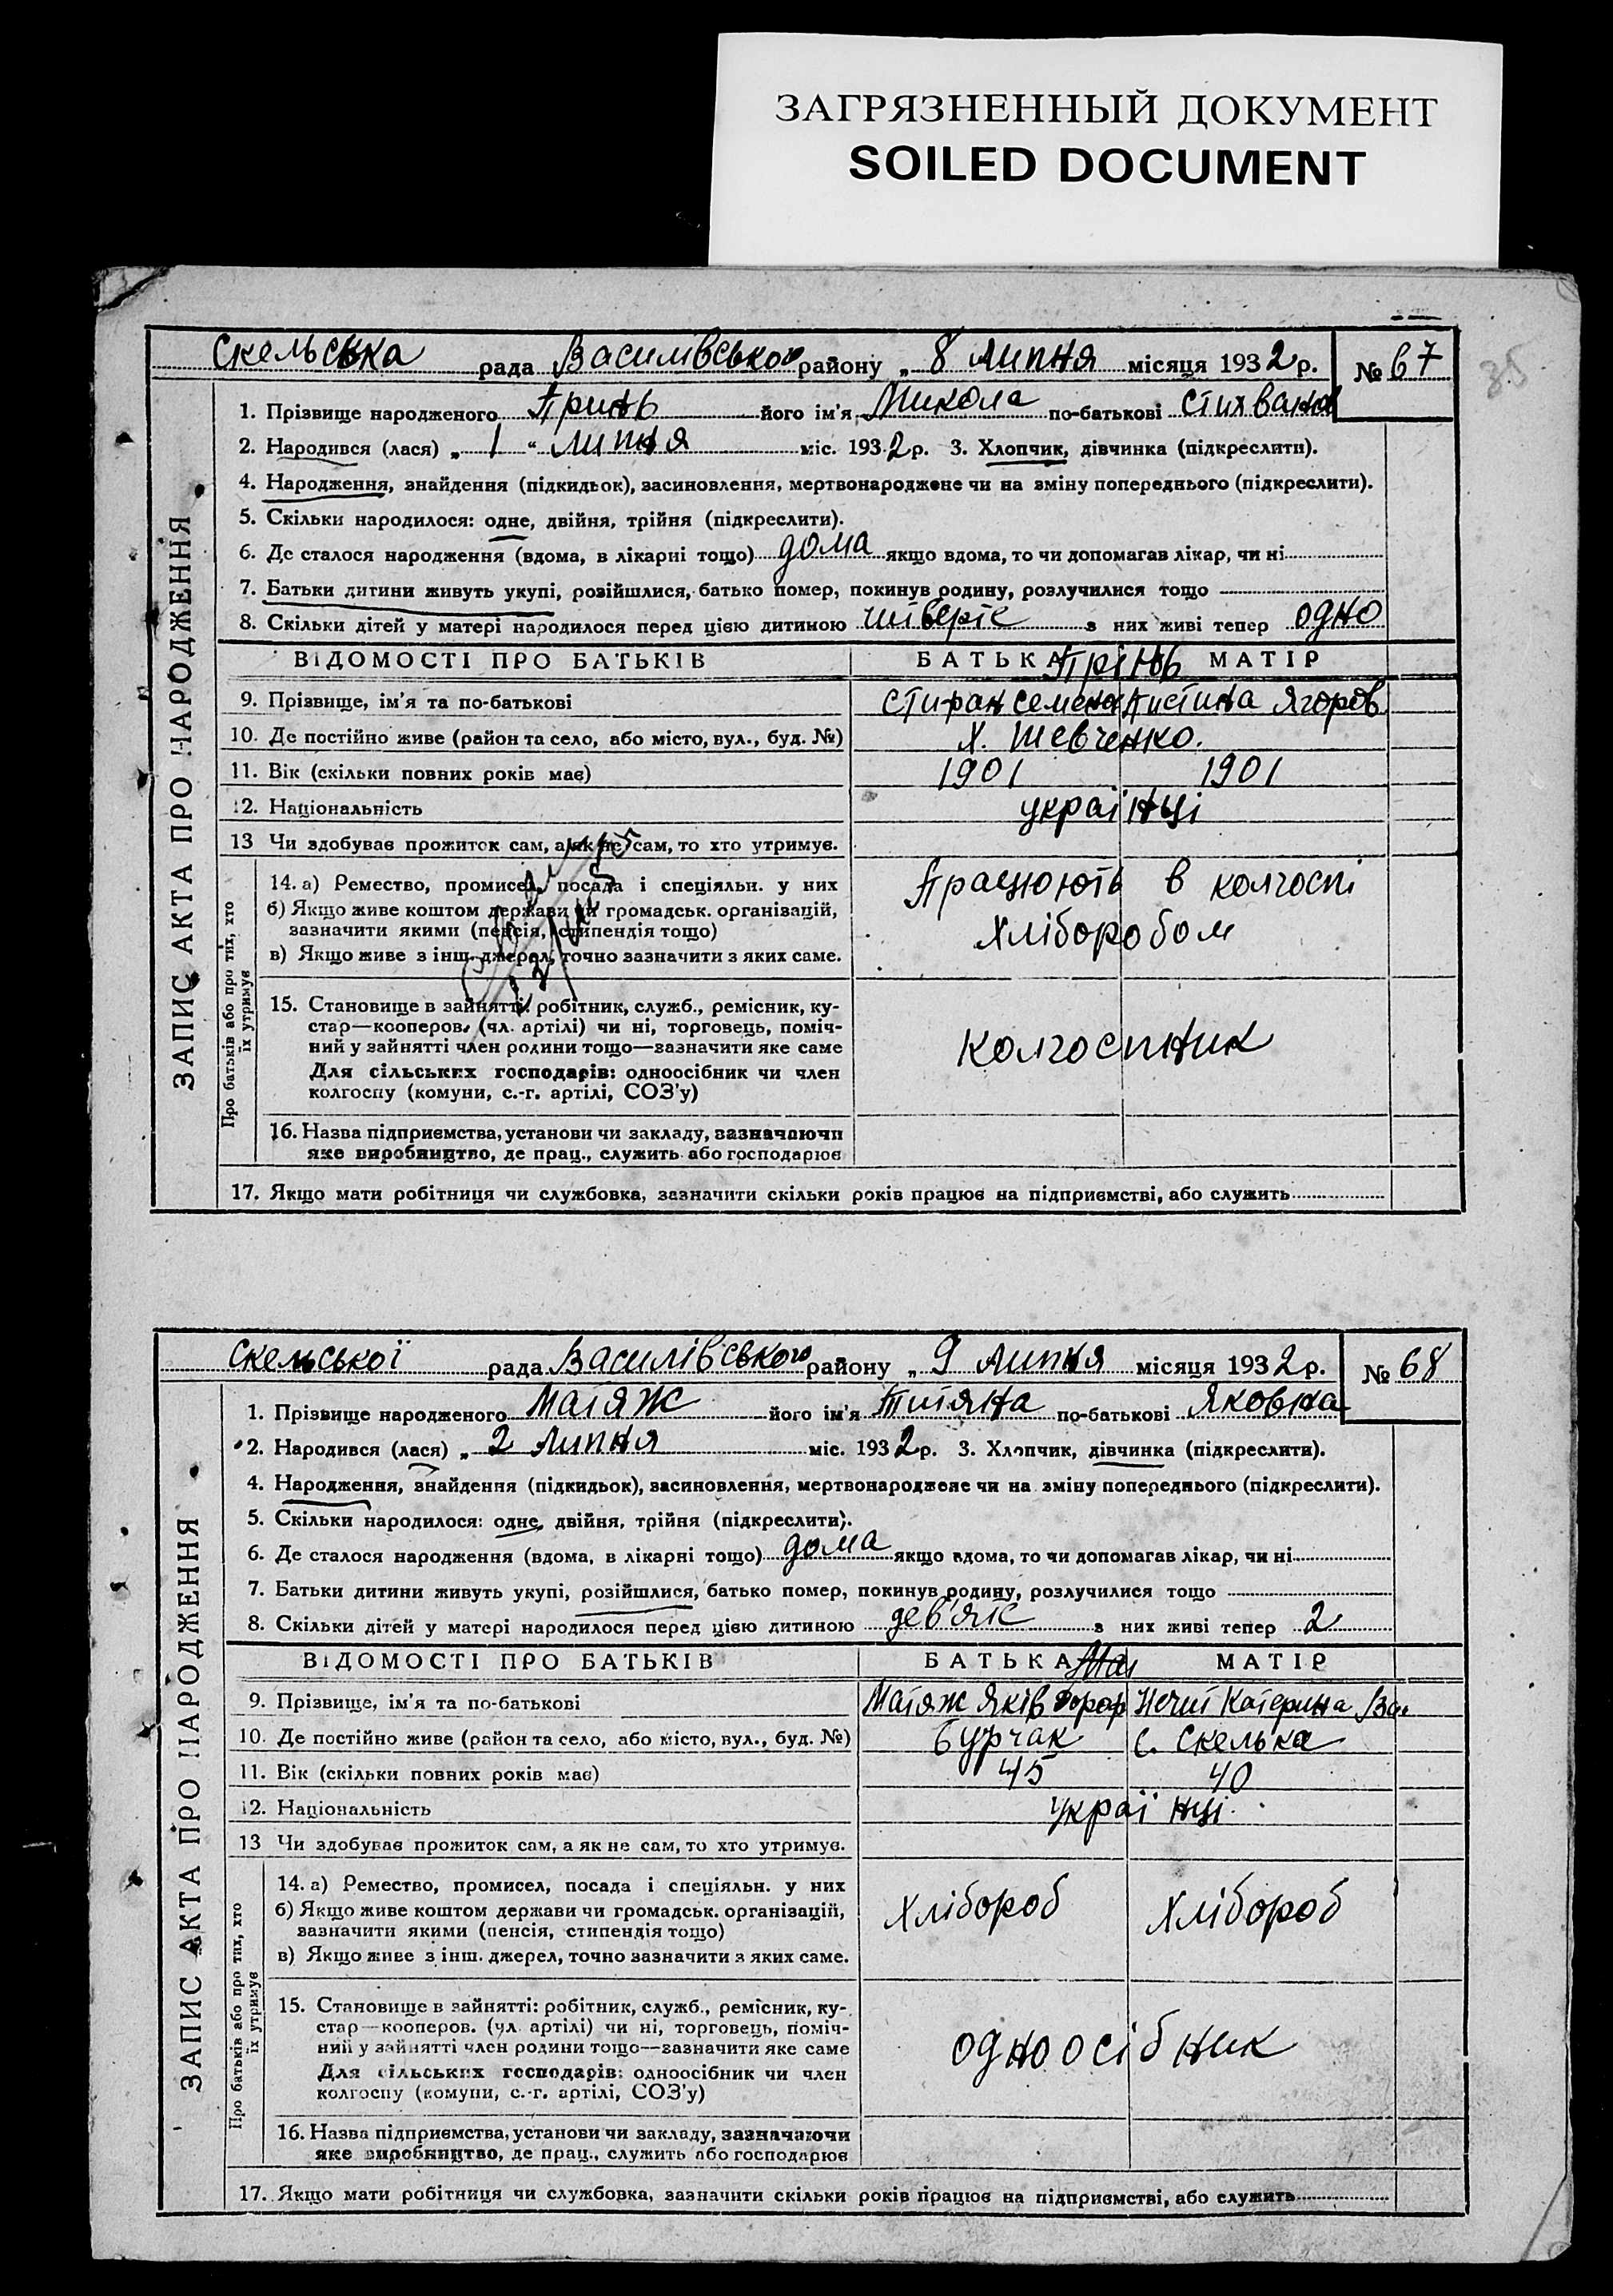 ЗАГРЯЗНЕННЫЙ ДОКУМЕНТ
SOILED DOCUMENT
35
Скельська рада Василівського району „ 8 липня місяця 1932 р. № 67
ЗАПИС АКТА ПРО НАРОДЖЕННЯ
1. Прізвище народженого Принь його ім'я Микола по-батькові
2. Народився (лася) „ 1 “ липня міс. 1932 р. 3. Хлопчик, дівчинка (підкреслити).
4. Народження, знайдення (підкидьок), засиновлення, мертвонароджене чи на зміну попереднього (підкреслити).
5. Скільки народилося: одне, двійня, трійня (підкреслити).
6. Де сталося народження (вдома, в лікарні тощо) дома якщо вдома, то чи допомагав лікар, чи ні
7. Батьки дитини живуть укупі, розійшлися, батько помер, покинув родину, розлучилися тощо
8. Скільки дітей у матері народилося перед цією дитиною з них живі тепер одно
ВІДОМОСТІ ПРО БАТЬКІВ БАТЬКА Прінь МАТІР
9. Прізвище, ім'я та по-батькові Стифан Семено Пистина Ягоров
10. Де постійно живе (район та село, або місто, вул., буд. №) Х. Шевченко.
11. Вік (скільки повних років має) 1901 1901
12. Національність українці
13 Чи здобував прожиток сам, а як не сам, то хто утримує.
Про батьків або про тих, хто їх утримує
14. а) Ремество, промисел, посада і спеціяльн. у них Працюють в колгоспі
б) Якщо живе коштом держави чи громадськ. організацій,
зазначити якими (пенсія, стипендія тощо) Хліборобом
в) Якщо живе з інш. джерел, точно зазначити з яких саме.
15. Становище в зайнятті: робітник, служб., ремісник, ку-
стар—кооперов. (чл. артілі) чи ні, торговець, поміч-
ний у зайнятті член родини тощо—зазначити яке саме колгоспник
Для сільських господарів: одноосібник чи член
колгоспу (комуни, с.-г. артілі, СОЗ'у)
16. Назва підприємства, установи чи закладу, зазначаючи
яке виробництво, де прац., служить або господарює
17. Якщо мати робітниця чи службовка, зазначити скільки років працює на підприємстві, або служить
Скельської рада Василівського району „ 9 липня місяця 1932 р. № 68
ЗАПИС АКТА ПРО НАРОДЖЕННЯ
1. Прізвище народженого Матяж його ім'я Титяна по-батькові Яковна
2. Народився (лася) „ 2 липня міс. 1932 р. 3. Хлопчик, дівчинка (підкреслити).
4. Народження, знайдення (підкидьок), засиновлення, мертвонароджене чи на зміну попереднього (підкреслити).
5. Скільки народилося: одне, двійня, трійня (підкреслити).
6. Де сталося народження (вдома, в лікарні тощо) дома якщо вдома, то чи допомагав лікар, чи ні
7. Батьки дитини живуть укупі, розійшлися, батько помер, покинув родину, розлучилися тощо
8. Скільки дітей у матері народилося перед цією дитиною дев'яте з них живі тепер 2
ВІДОМОСТІ ПРО БАТЬКІВ БАТЬКА МАТІР
9. Прізвище, ім'я та по-батькові Матяж Яків Катерина Ва.
10. Де постійно живе (район та село, або місто, вул., буд. №) Бурчак с. Скелька
11. Вік (скільки повних років має) 45 40
12. Національність українці
13 Чи здобував прожиток сам, а як не сам, то хто утримує.
Про батьків або про тих, хто їх утримує
14. а) Ремество, промисел, посада і спеціяльн. у них
б) Якщо живе коштом держави чи громадськ. організацій, Хлібороб Хлібороб
зазначити якими (пенсія, стипендія тощо)
в) Якщо живе з інш. джерел, точно зазначити з яких саме.
15. Становище в зайнятті: робітник, служб., ремісник, ку-
стар—кооперов. (чл. артілі) чи ні, торговець, поміч-
ний у зайнятті член родини тощо—зазначити яке саме одноосібник
Для сільських господарів: одноосібник чи член
колгоспу (комуни, с.-г. артілі, СОЗ'у)
16. Назва підприємства, установи чи закладу, зазначаючи
яке виробництво, де прац., служить або господарює
17. Якщо мати робітниця чи службовка, зазначити скільки років працює на підприємстві, або служить